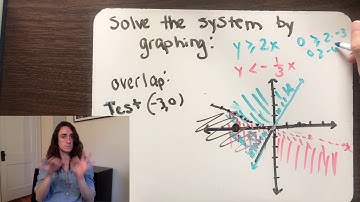 Solve the system by
graphing:
y ≥ 2x
y < - 1/3 x
0 ≥ 2·-3
overlap:
Test (-3,0)